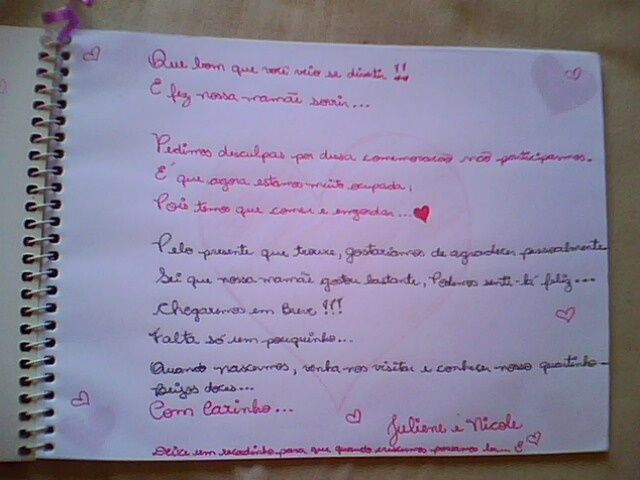 Que bom que você veio se divertir !!
E fez nossa mamãe sorrir...
Pedimos desculpas por dessa comemoração não participarmos.
É que agora estamos muito ocupada,
Pois temos que comer e engordar...
Pelo presente que trouxe, gostariamos de agradecer pessoalmente
Sei que nossa mamãe gostou bastante, Podemos senti-lá feliz...
Chegaremos em Breve !!!
Falta só um pouquinho...
Quando nascermos, venha nos visitar e conhecer nosso quartinho
Beijos doces...
Com Carinho...
Juliene e Nicole
Deixe um recadinho para que quando crescermos possamos ler...